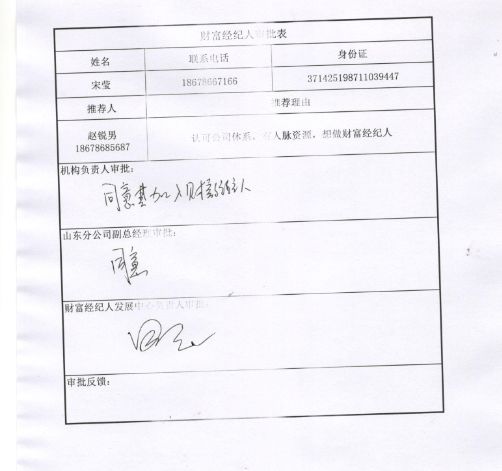 财富经纪人审批表
姓名 联系电话 身份证
宋莹 18678667166 371425198711039447
推荐人 推荐理由
赵锐男 认可公司体系，有人脉资源，想做财富经纪人
18678685687
机构负责人审批：
同意其加入财富经纪人
山东分公司副总经理审批：
同意
财富经纪人发展中心负责人审批：
同意
审批反馈：